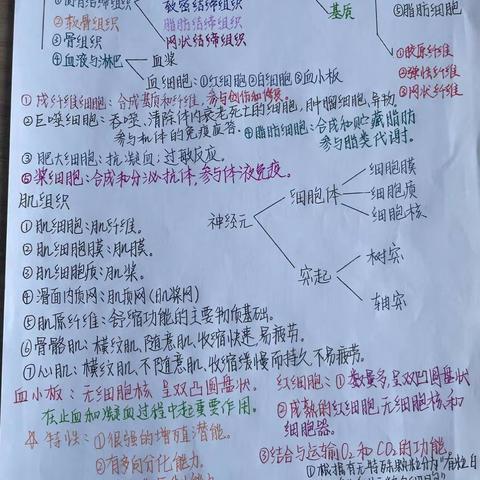 ①固有结缔组织
致密结缔组织
基质
⑤脂肪细胞
②软骨组织
脂肪组织
③骨组织
网状结缔组织
①胶原纤维
④血液与淋巴
血浆
②弹性纤维
血细胞:①红细胞②白细胞③血小板
③网状纤维
①成纤维细胞:合成基质和纤维,参与创伤和修复。
②巨噬细胞:吞噬、清除体内衰老死亡的细胞,肿瘤细胞、异物。
参与机体的免疫应答。
④脂肪细胞:合成和贮藏脂肪
参与脂类代谢。
③肥大细胞:抗凝血;过敏反应。
⑤浆细胞:合成和分泌抗体,参与体液免疫。
肌组织
①肌细胞:肌纤维。
②肌细胞膜:肌膜。
③肌细胞质:肌浆。
④滑面内质网:肌质网(肌浆网)
⑤肌原纤维:舒缩功能的主要物质基础。
⑥骨骼肌:横纹肌、随意肌、收缩快速、易疲劳。
⑦心肌:横纹肌、不随意肌、收缩缓慢而持久、不易疲劳。
神经元
细胞体
细胞膜
细胞质
细胞核
突起
树突
轴突
血小板:无细胞核、呈双凸圆盘状。
在止血和凝血过程中起重要作用。
红细胞:①数量多,呈双凹圆盘状
②成熟的红细胞,无细胞核,和
细胞器。
③结合与运输O₂和CO₂的功能。
特性:①很强的增殖潜能。
②有多向分化能力。
①根据有无特殊颗粒分为"有粒白